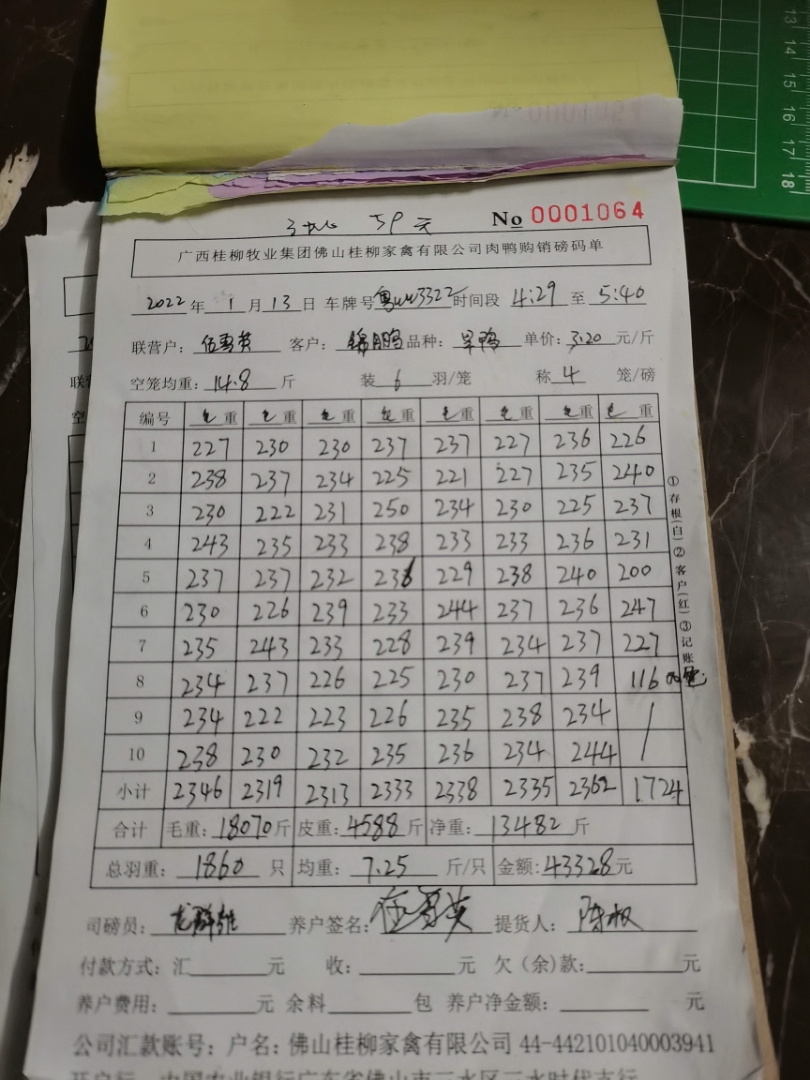 59元
No 0001064
广西桂柳牧业集团佛山桂柳家禽有限公司肉鸭购销磅码单
2022年 1月13日 车牌号 3322 时间段 4:29 至 5:40
联营户: 伍雪英 客户: 锦鹏 品种: 旱鸭 单价: 3.20 元/斤
空笼均重: 14.8 斤 装 6 羽/笼 称 4 笼/磅
编号 毛重 毛重 毛重 毛重 毛重 毛重 毛重 毛重
1 227 230 230 237 237 227 236 226
2 238 237 234 225 221 227 235 240
3 230 222 231 250 234 230 225 237
4 243 235 233 238 233 233 236 231
5 237 237 232 236 229 238 240 200
6 230 226 239 233 244 237 236 247
7 235 243 233 228 239 234 237 227
8 234 237 226 225 230 237 239 116
9 234 222 223 226 235 238 234
10 238 230 232 235 236 234 244
小计 2346 2319 2313 2333 2338 2335 2362 1724
合计 毛重: 18070 斤 皮重: 4588 斤 净重: 13482 斤
总羽重: 1860 只 均重: 7.25 斤/只 金额: 43328 元
司磅员: 养户签名: 伍雪英 提货人: 陈权
付款方式: 汇 元 收: 元 欠(余)款: 元
养户费用: 元 余料 包 养户净金额: 元
公司汇款账号: 户名: 佛山桂柳家禽有限公司 44-442101040003941
开户行: 中国农业银行广东省佛山市三水区三水时代支行
①存根(白)②客户(红)③记账
13
14
15
16
17
18